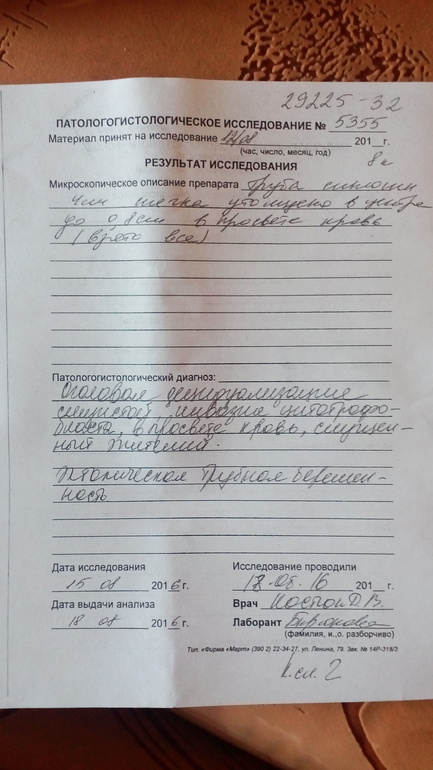 29225-32
ПАТОЛОГОГИСТОЛОГИЧЕСКОЕ ИССЛЕДОВАНИЕ № 5355
Материал принят на исследование 12/08 201 г.
(час, число, месяц, год)
РЕЗУЛЬТАТ ИССЛЕДОВАНИЯ
8к
Микроскопическое описание препарата труба
4см стенка утолщено в
до 0,8см в просвете кровь
(взято все)
Патологогистологический диагноз:
Очаговая децидуализация
слизистой, инвазия цитотрофо-
бласта, в просвете кровь, слущен-
ный эпителий.
Эктопическая трубная беремен-
ность
Дата исследования
15 08 2016 г.
Исследование проводили
17.08.16 201 г.
Дата выдачи анализа
18 08 2016 г.
Врач
Лаборант
(фамилия, и.,о. разборчиво)
Тип. «Фирма «Март» (390 2) 22-34-27, ул. Ленина, 79. Зак. № 14Р-318/3
к.сл. 2